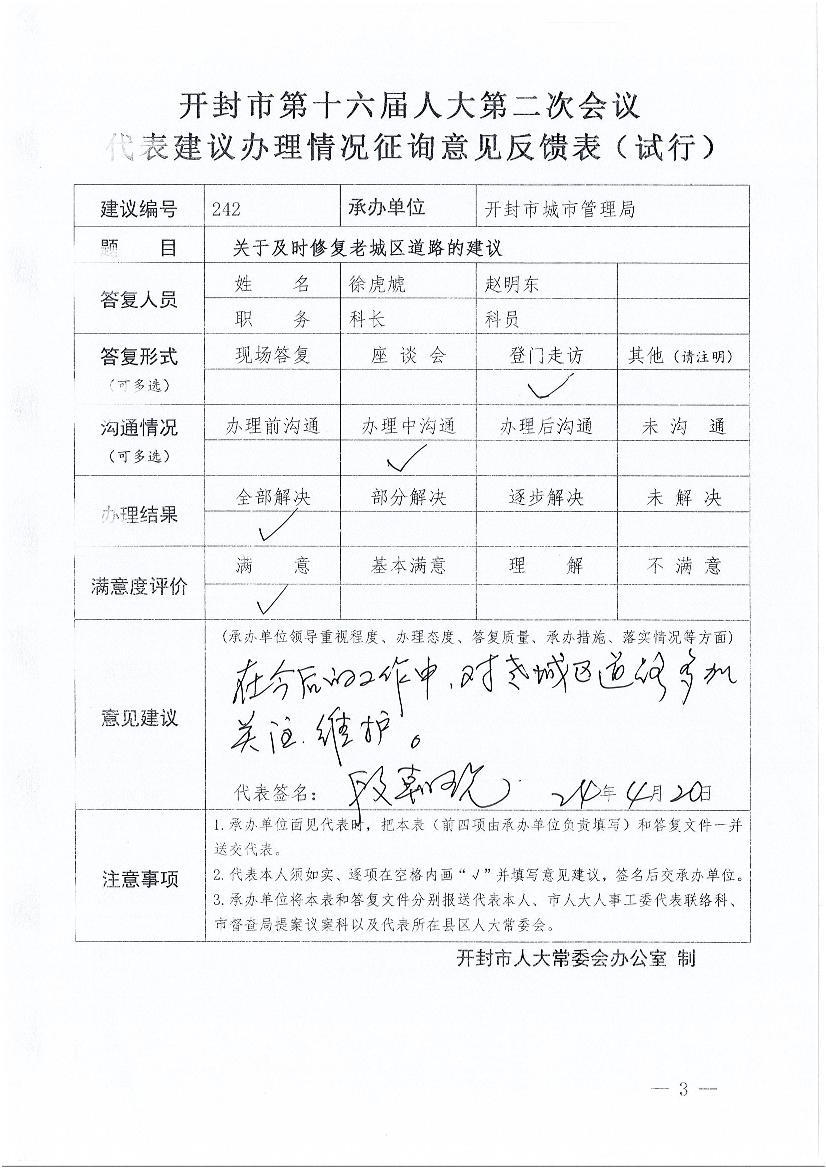 开封市第十六届人大第二次会议
代表建议办理情况征询意见反馈表（试行）
建议编号 242 承办单位 开封市城市管理局
题 目 关于及时修复老城区道路的建议
答复人员 姓 名 徐虎虓 赵明东
职 务 科长 科员
答复形式 现场答复 座 谈 会 登门走访 其他（请注明）
（可多选） ✓
沟通情况 办理前沟通 办理中沟通 办理后沟通 未 沟 通
（可多选） ✓
办理结果 全部解决 部分解决 逐步解决 未 解 决
✓
满意度评价 满 意 基本满意 理 解 不 满 意
✓
（承办单位领导重视程度、办理态度、答复质量、承办措施、落实情况等方面）
意见建议 在今后的工作中、对老城区道路多加
关注、维护。
代表签名： 段 24年4月20日
注意事项 1.承办单位面见代表时，把本表（前四项由承办单位负责填写）和答复文件一并
送交代表。
2.代表本人须如实、逐项在空格内画“√”并填写意见建议，签名后交承办单位。
3.承办单位将本表和答复文件分别报送代表本人、市人大人事工委代表联络科、
市督查局提案议案科以及代表所在县区人大常委会。
开封市人大常委会办公室 制
— 3 —